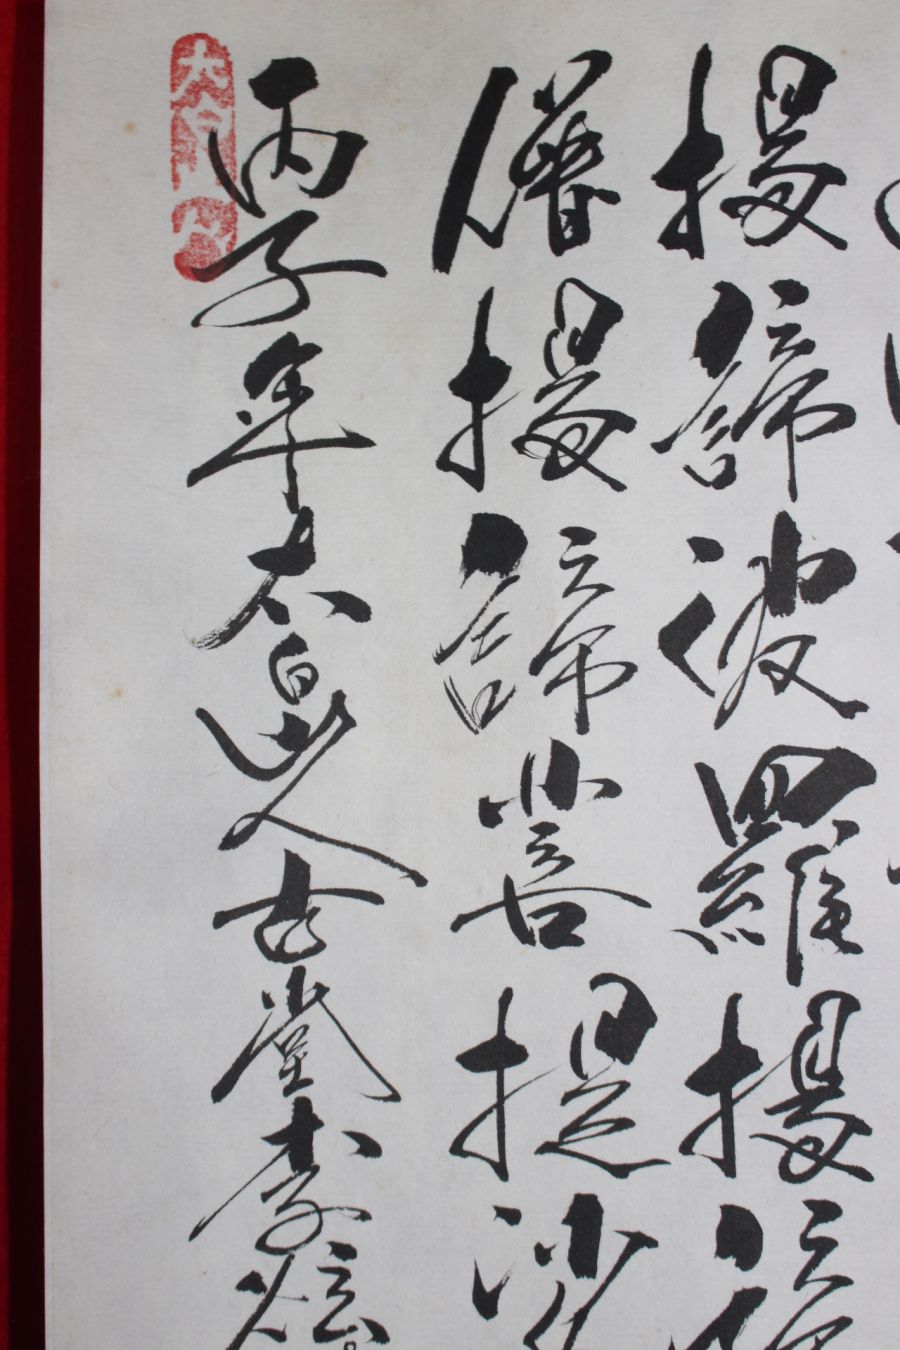 揭諦波羅揭諦
僧揭諦菩提娑
丙子年太白山人古堂李